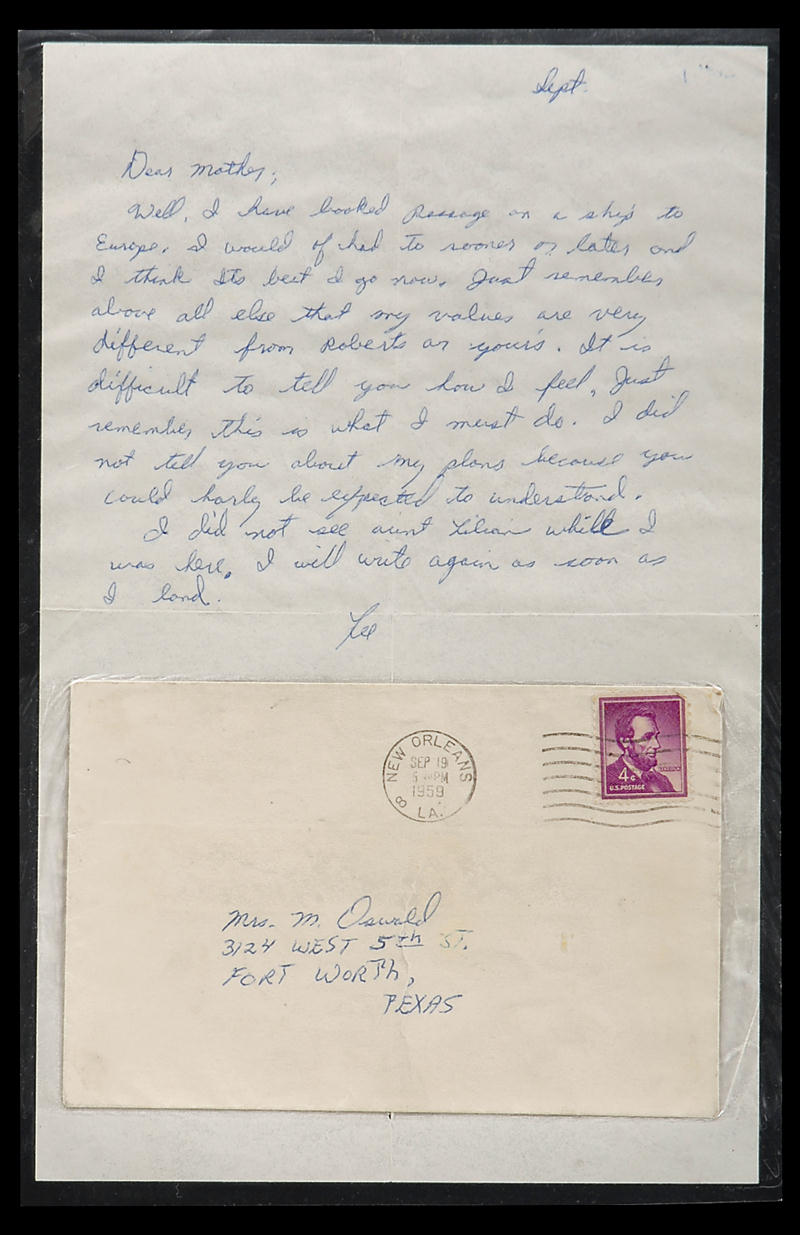 Sept.
Dear Mother;
Well, I have booked passage on a ship to
Europe. I would of had to sooner or later and
I think Its best I go now. Just remember
above all else that my values are very
different from Roberts or your's. It is
difficult to tell you how I feel, Just
remember this is what I must do. I did
not tell you about my plans because you
could harly be expected to understand.
I did not see aunt Lilian while I
was here. I will write again as soon as
I land.
Lee
NEW ORLEANS
SEP 19
PM
1959
8
LA.
4¢
U.S. POSTAGE
Mrs. M. Oswald
3124 WEST 5th ST.
FORT WORTH,
TEXAS